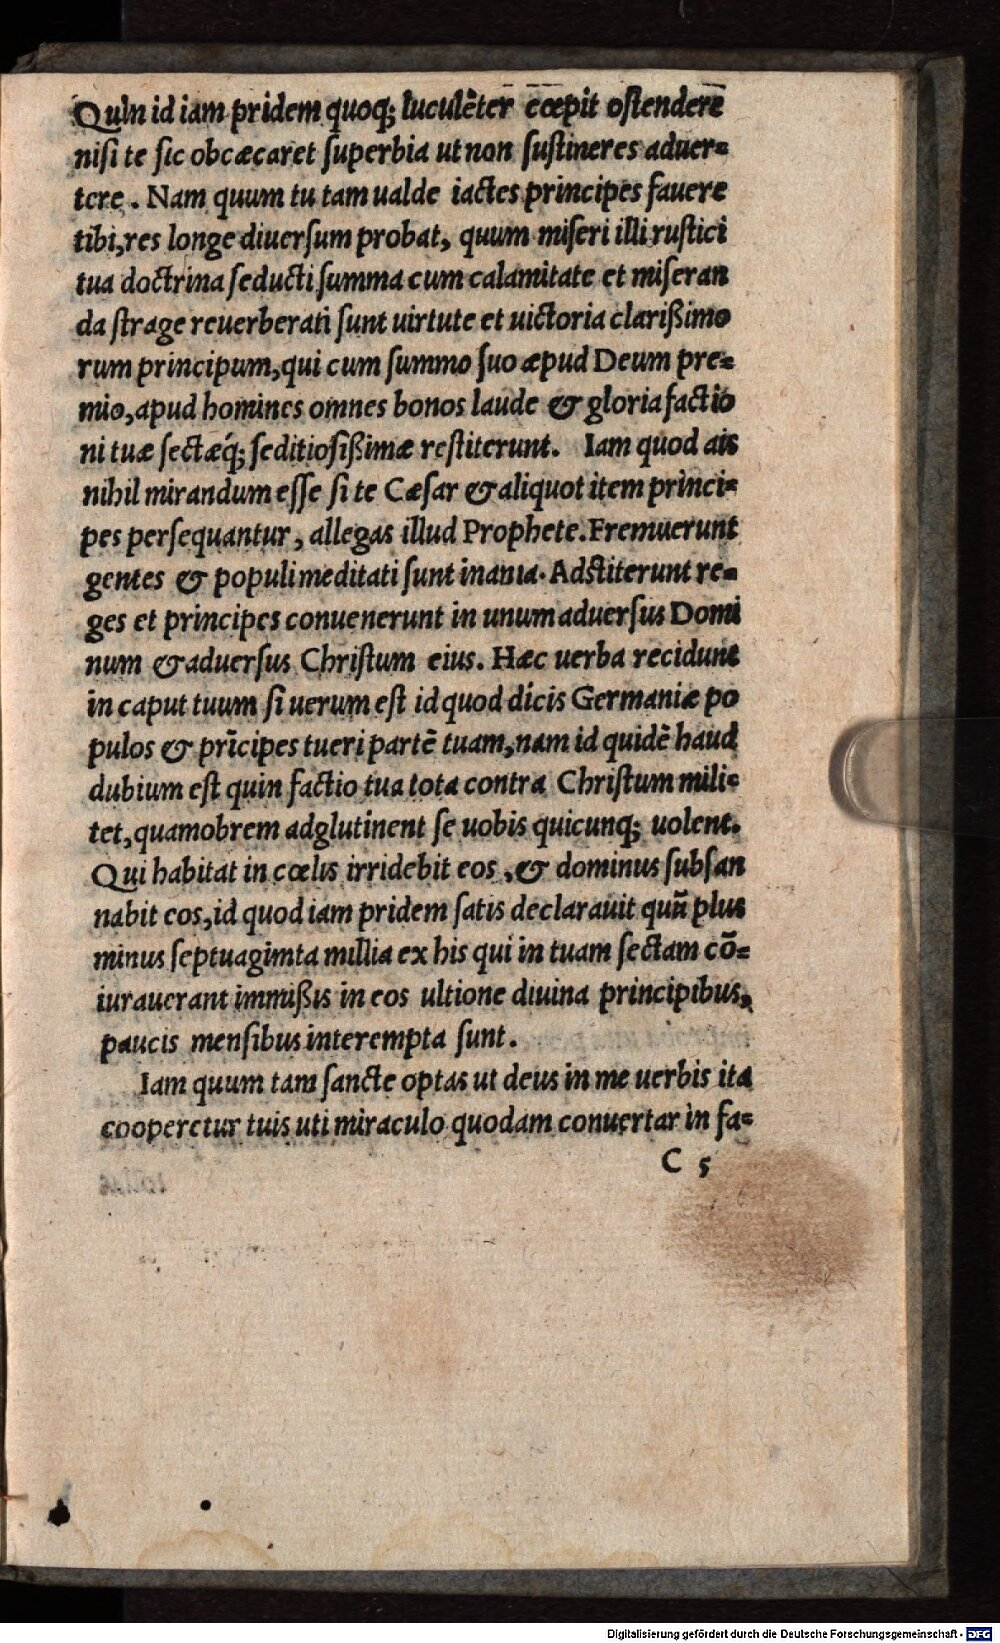 Quin id iam pridem quoq; luculẽter cœpit oſtendere
niſi te ſic obcæcaret ſuperbia ut non ſuſtineres aduer-
tere. Nam quum tu tam ualde iactes principes fauere
tibi, res longe diuerſum probat, quum miſeri illi ruſtici
tua doctrina ſeducti ſumma cum calamitate et miſeran
da ſtrage reuerberati ſunt uirtute et uictoria clarißimo
rum principum, qui cum ſummo ſuo apud Deum pre-
mio, apud homines omnes bonos laude & gloria factio
ni tuæ ſectæq́; ſeditioſißimæ reſtiterunt. Iam quod ais
nihil mirandum eſſe ſi te Cæſar & aliquot item princi-
pes perſequantur, allegas illud Prophete. Fremuerunt
gentes & populi meditati ſunt inania. Adſtiterunt re-
ges et principes conuenerunt in unum aduerſus Domi
num & aduerſus Chriſtum eius. Hæc uerba recidunt
in caput tuum ſi uerum eſt id quod dicis Germaniæ po
pulos & prĩcipes tueri partẽ tuam, nam id quidẽ haud
dubium eſt quin factio tua tota contra Chriſtum mili-
tet, quamobrem adglutinent ſe uobis quicunq; uolent.
Qui habitat in cœlis irridebit eos, & dominus ſubſan
nabit eos, id quod iam pridem ſatis declarauit quũ plus
minus ſeptuagimta millia ex his qui in tuam ſectam cõ-
iurauerant immißis in eos ultione diuina principibus,
paucis menſibus interempta ſunt.
Iam quum tam ſancte optas ut deus in me uerbis ita
cooperetur tuis uti miraculo quodam conuertar in fa-
C 5
Digitalisierung gefördert durch die Deutsche Forschungsgemeinschaft - DFG